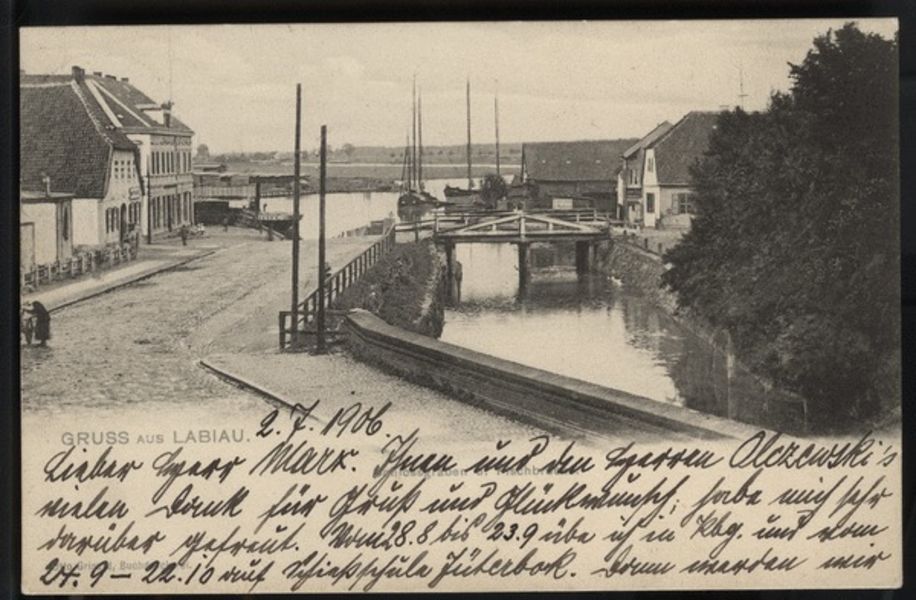 GRUSS AUS LABIAU.
2.7.1906.
Lieber Herr Marx. Ihnen und den Herren Olczewski's
vielen Dank für Gruß und Glückwunsch; habe mich sehr
darüber gefreut. Vom 28.8 bis 23.9 übe ich in Kbg. und vom
24.9 – 22.10 auf Schießschule Jüterbok. Dann werden wir